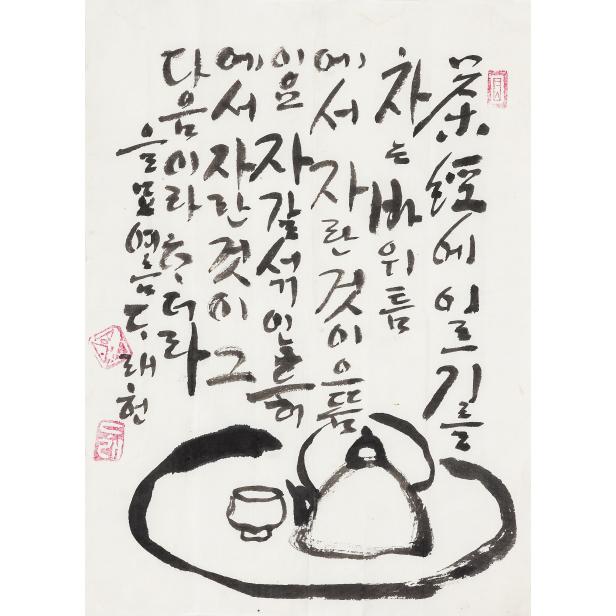 茶經에 이르기를
차는 바위틈
에서 자란 것이 으뜸
이요 자갈 섞인 흙
에서 자란 것이 그
다음이라 하더라
을묘 여름 다래헌